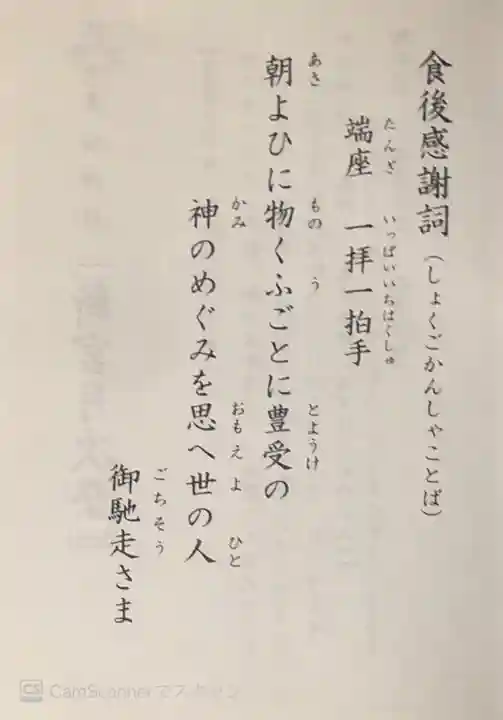 食後感謝詞（しょくごかんしゃことば）
端座　一拝一拍手
たんざ　いっぱいいちはくしゅ
朝よひに物くふごとに豊受の
あさ　もの　う　とようけ
神のめぐみを思へ世の人
かみ　おもえ　よ　ひと
御馳走さま
ごちそう
CS CamScannerでスキャン